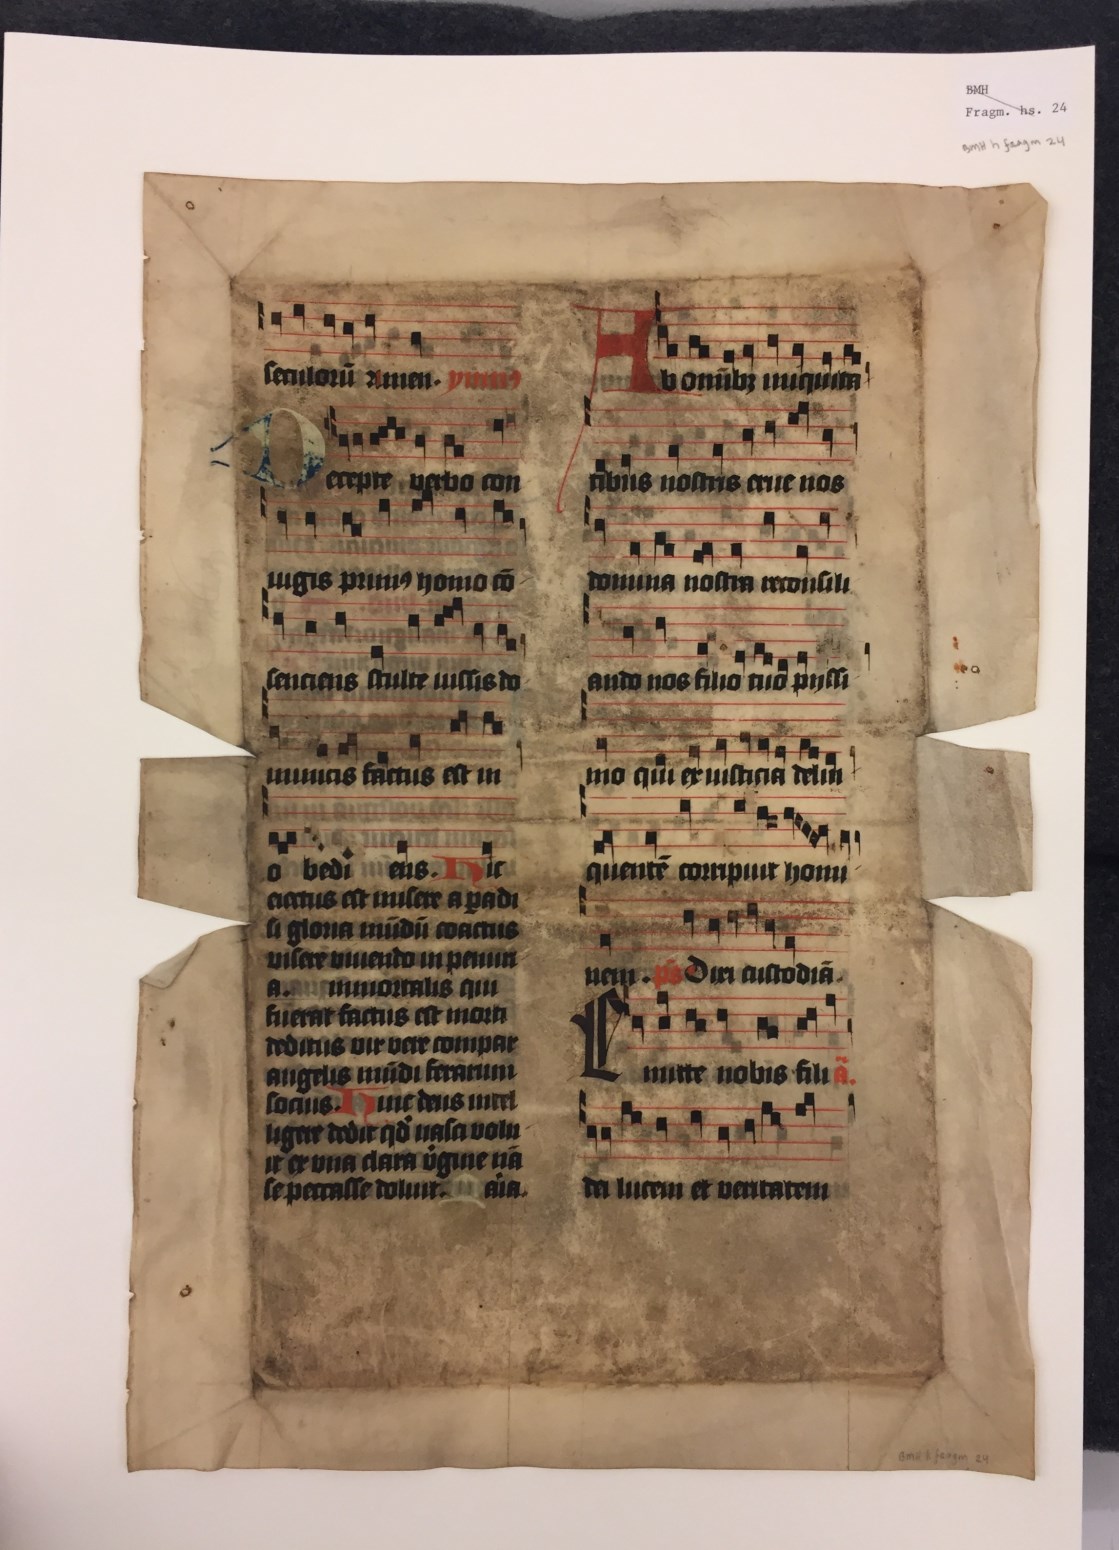 BMH
Fragm. hs. 24
BMH h fragm 24
seculorū Amen. ymnꝰ
Decepte verbo con
iugis primꝰ homo cō
senciens stulte iussis do
minicis factus est in
o bedi ens. Hic
eiectus est misere a ꝑadi
si gloria mūdū coactus
visere viuendo in penuri
a. inmortalis qui
fuerat factus est morti
deditus vir vere compar
angelis mūdi ferarum
socius. Hinc deus intel
ligere dedit qd̓ nasci volu
it ex vna clara v̓gine nā
se peccasse doluit. aīa.
Ab omībꝫ iniquita
tibus nostris erue nos
domina nostra reconsili
ando nos filio tuo pyssi
mo qui ex iusticia delin
quentē corripiut homi
nem. ps̄ Dixi custodiā.
Emitte nobis fili ā.
dei lucem et veritatem
BMH h fragm 24